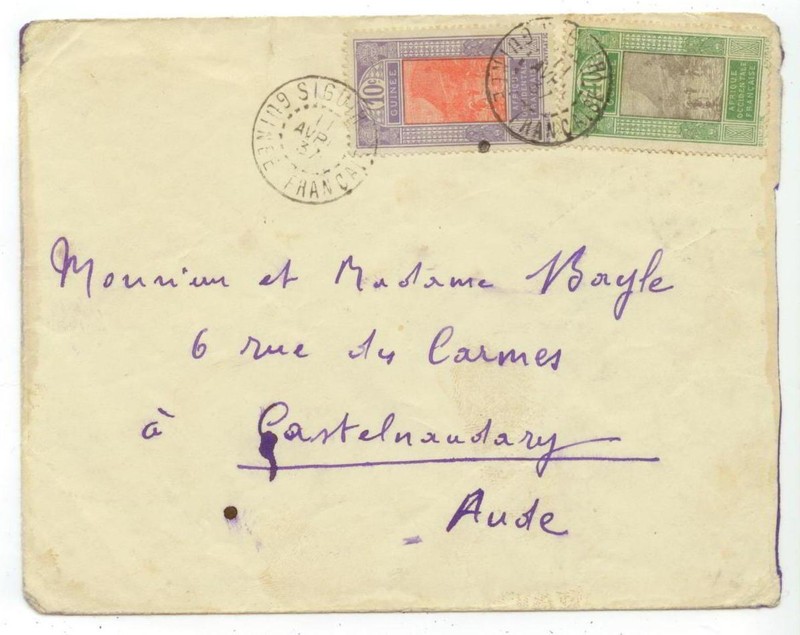 10c
GUINÉE
AFRIQUE
OCCIDENTALE
FRANÇAISE
SIGUIRI
11
AVR
37
GUINÉE FRANÇAISE
Monsieur et Madame Bayle
6 rue des Carmes
à Castelnaudary
Aude